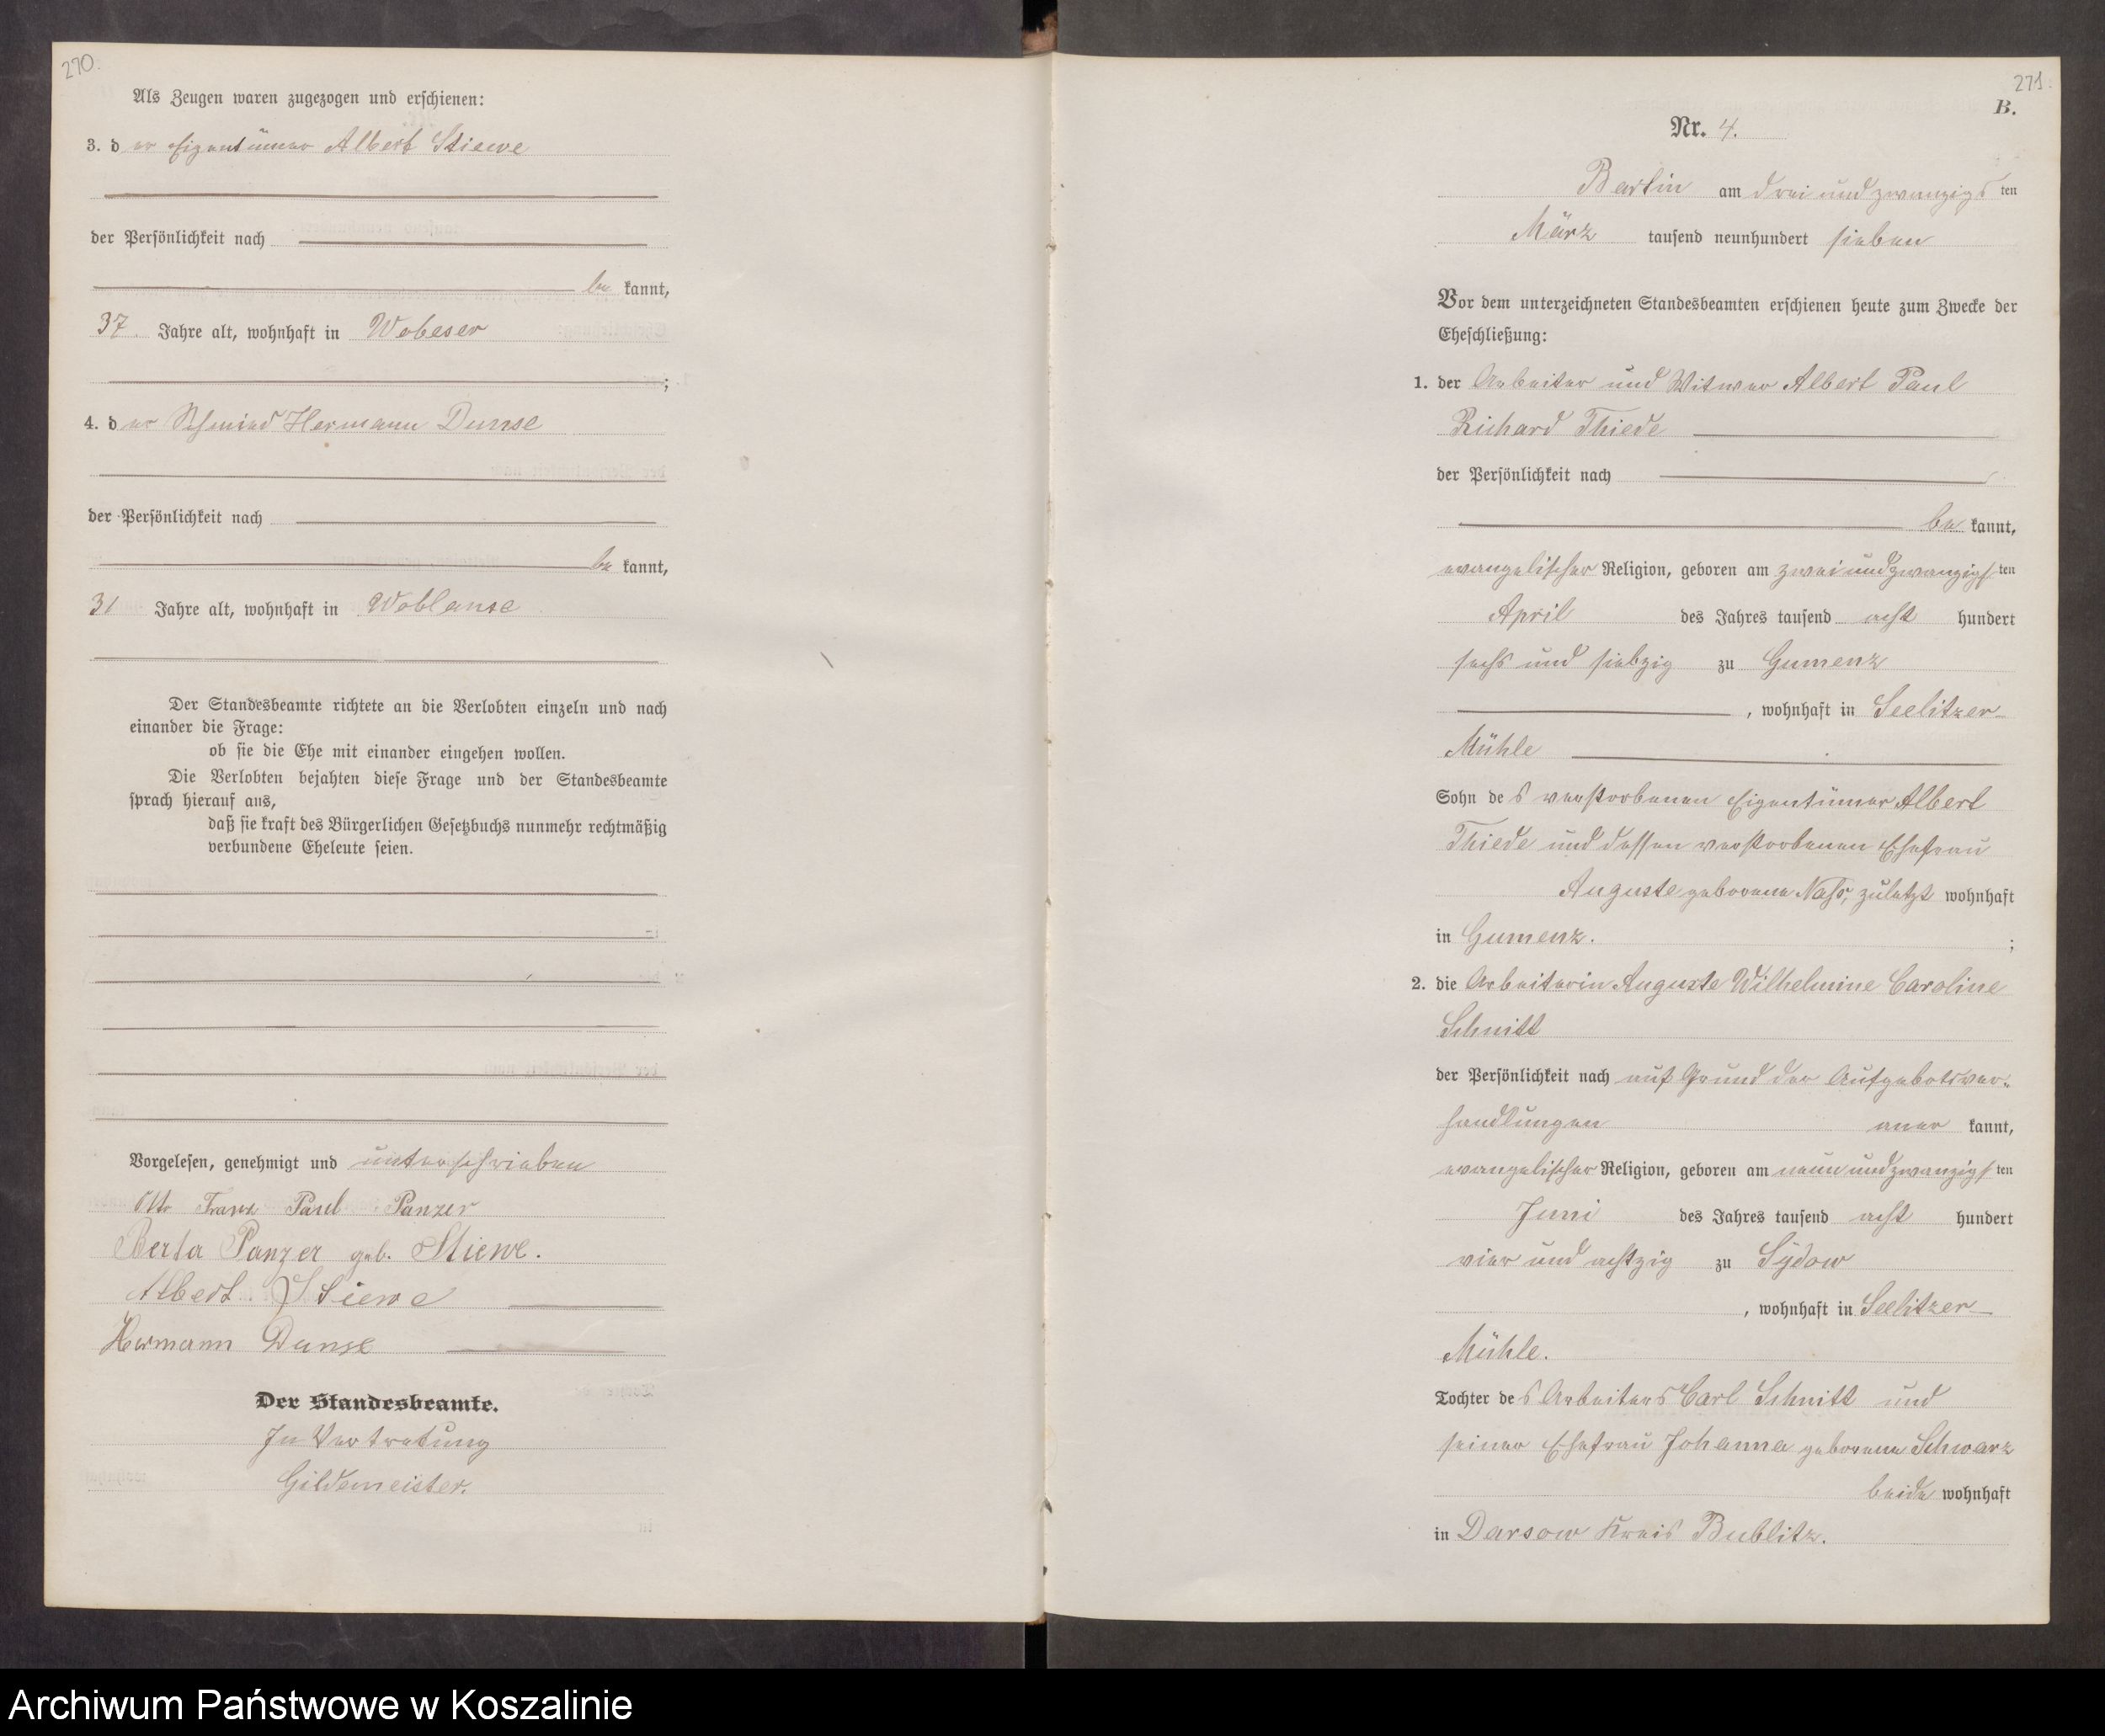 270.
Als Zeugen waren zugezogen und erschienen:
3. der Eigentümer Albert Stiewe
der Persönlichkeit nach
be kannt,
37. Jahre alt, wohnhaft in Wobeser
;
4. der Schmied Hermann Dunse
der Persönlichkeit nach
be kannt,
31 Jahre alt, wohnhaft in Woblanse
Der Standesbeamte richtete an die Verlobten einzeln und nach
einander die Frage:
ob sie die Ehe mit einander eingehen wollen.
Die Verlobten bejahten diese Frage und der Standesbeamte
sprach hierauf aus,
daß sie kraft des Bürgerlichen Gesetzbuchs nunmehr rechtmäßig
verbundene Eheleute seien.
Vorgelesen, genehmigt und unterschrieben
Otto Franz Paul Panzer
Berta Panzer geb. Stiewe.
Albert Stiewe
Hermann Dunse
Der Standesbeamte.
In Vertretung
Gildemeister.
271.
B.
Nr. 4.
Bartin am drei und zwanzigsten
März tausend neunhundert sieben
Vor dem unterzeichneten Standesbeamten erschienen heute zum Zwecke der
Eheschließung:
1. der Arbeiter und Witwer Albert Paul
Richard Thiede
der Persönlichkeit nach
be kannt,
evangelischer Religion, geboren am zwei und zwanzigsten
April des Jahres tausend acht hundert
sechs und siebzig zu Gumenz
, wohnhaft in Seelitzer-
Mühle
Sohn des verstorbenen Eigentümer Albert
Thiede und dessen verstorbenen Ehefrau
Auguste geborene Nass, zuletzt wohnhaft
in Gumenz. ;
2. die Arbeiterin Auguste Wilhelmine Caroline
Schnitt
der Persönlichkeit nach auf Grund der Aufgebotsver-
handlungen aner kannt,
evangelischer Religion, geboren am neun und zwanzigsten
Juni des Jahres tausend acht hundert
vier und achtzig zu Sydow
, wohnhaft in Seelitzer-
Mühle.
Tochter des Arbeiters Carl Schnitt und
seiner Ehefrau Johanna geborene Schwarz
beide wohnhaft
in Darsow Kreis Bublitz.
Archiwum Państwowe w Koszalinie